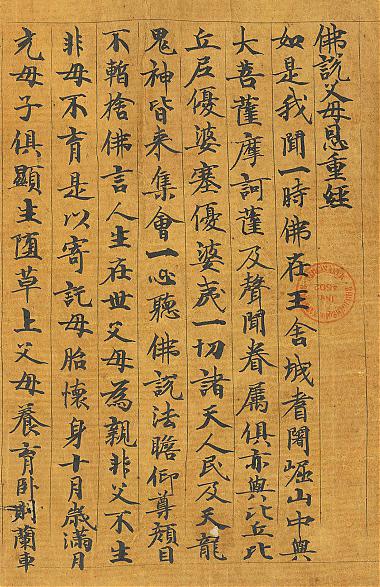 佛說父母恩重經
如是我聞一時佛在王舍城耆闍崛山中與
大菩薩摩訶薩及聲聞眷屬俱亦與比丘比
丘尼優婆塞優婆夷一切諸天人民及天龍
鬼神皆來集會一心聽佛說法瞻仰尊顏目
不暫捨佛言人生在世父母為親非父不生
非母不育是以寄託母胎懷身十月歲滿月
充母子俱顯生墮草上父母養育臥則蘭車